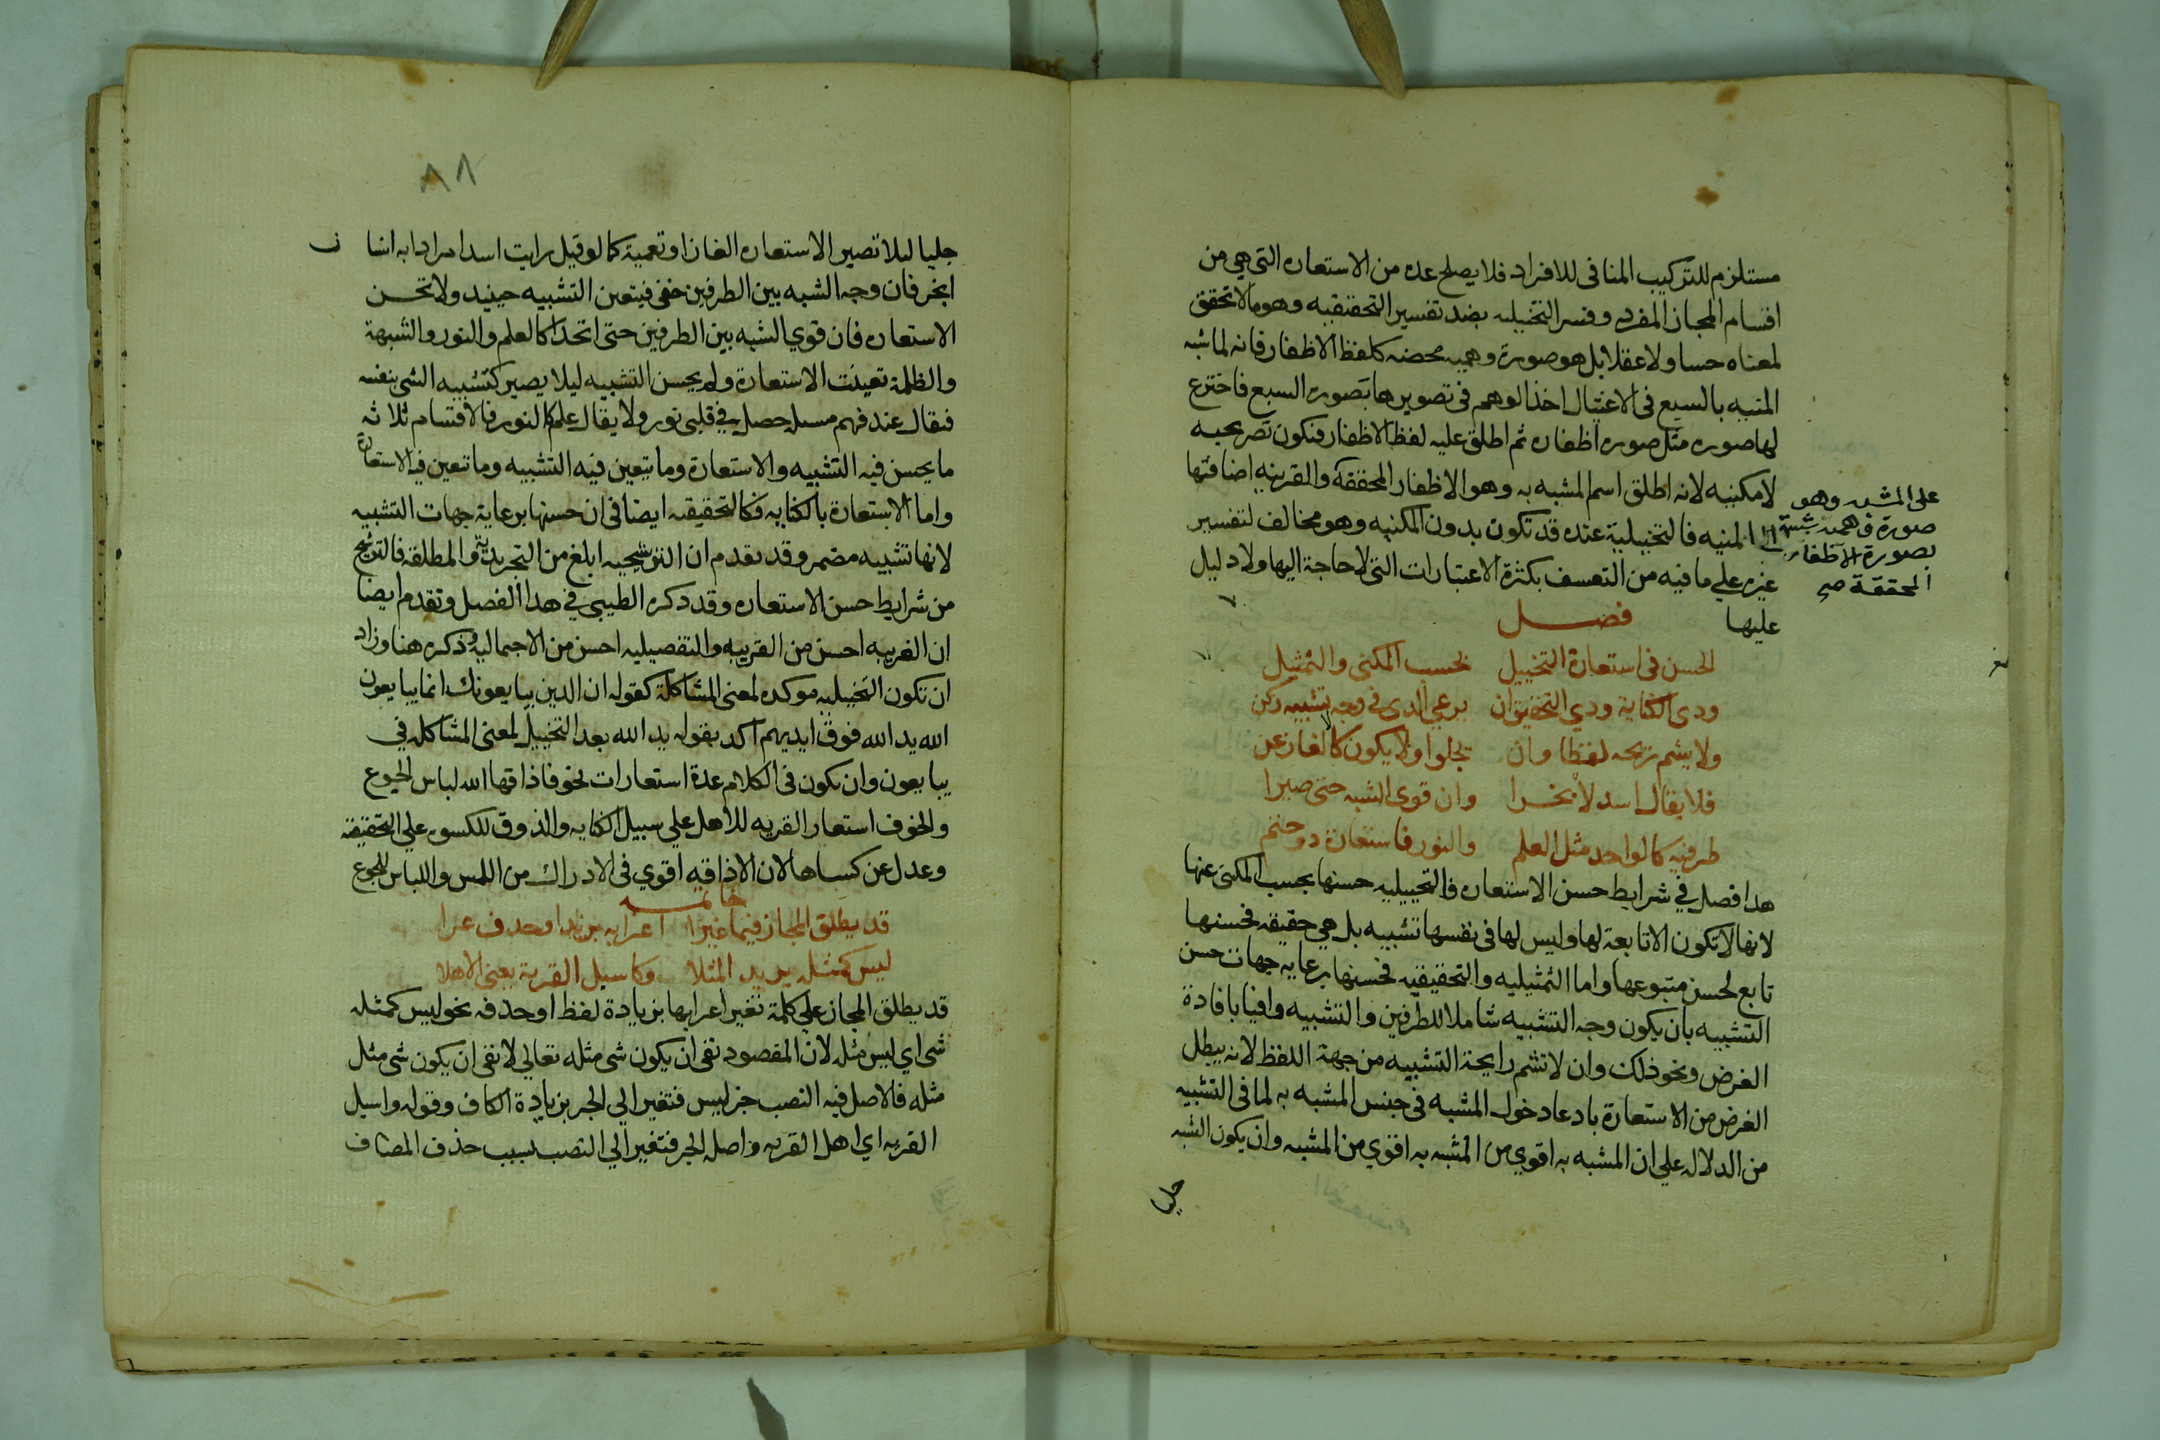 مستلزم للتركيب المنافى للافراد فلا يصلح عده من الاستعاره التى هى من
اقسام المجاز المفرد وفسر التخييليه بضد تفسير التحقيقيه وهو ما لا تحقق
لمعناه حسا ولا عقلا بل هو صورة وهميه محضه كلفظ الاظفار فانه لما شبه
المنيه بالسبع فى الاغتيال اخذ الوهم فى تصويرها بصوره السبع فاخترع
لها صوره مثل صوره اظفاره ثم اطلق عليه لفظ الاظفار فتكون تصريحيه
لا مكنيه لانه اطلق اسم المشبه به وهو الاظفار المحققة والقرينه اضافتها
على المشبه وهو
صورة وهميه شبيهة
بصورة الاظفار
المحققة صح
الى المنيه فالتخييلية عنده قد تكون بدون المكنيه وهو مخالف لتفسير
غيره على ما فيه من التعسف بكثرة الاعتبارات التى لا حاجة اليها ولا دليل
عليها فصل
الحسن فى استعارة التخييل بحسب المكنى والتمثيل
وذى الكناية وذي التحقيق ان يرعي الذى فى وجه تشبيه زكن
ولا يشم ريحه لفظا وان يجلوا ولا يكون كالغاز عن
فلا يقال اسد لابخرا وان قوى الشبه حتى صيرا
طرفيه كالواحد مثل العلم والنور فاستعارة ذو حتم
هدا فصل في شرايط حسن الاستعاره فالتخييليه حسنها بحسب المكنى عنها
لانها لا تكون الا تابعة لها وليس لها فى نفسها تشبيه بل هي حقيقه فحسنها
تابع لحسن متبوعها واما التمثيليه والتحقيقيه فحسنها برعايه جهات حسن
التشبيه بان يكون وجه التشبيه شاملا للطرفين والتشبيه وافيا بافادة
الغرض ونحو ذلك وان لا تشم رايحة التشبيه من جهة اللفظ لانه يبطل
الغرض من الاستعارة بادعا دخول المشبه فى جنس المشبه به لما فى التشبيه
من الدلاله على ان المشبه به اقوي من المشبه به اقوي من المشبه وان يكون الشبه
جليا
٨٨
جليا ليلا تصير الاستعاره الغازا وتعمية كما لو قيل رايت اسدا مرادا به انسا ن
ابخر فان وجه الشبه بين الطرفين خفى فيتعين التشبيه حينيد ولا تحسن
الاستعاره فان قوي الشبه بين الطرفين حتى اتحدا كالعلم والنور والشبهة
والظلمة تعينت الاستعارة ولم يحسن التشبيه ليلا يصير كتشبيه الشى بنفسه
فيقال عند فهم مسلة حصل في قلبى نور ولا يقال علم كالنور فالاقسام ثلاثه
ما يحسن فيه التشبيه والاستعارة وما يتعين فيه التشبيه وما تعين فيه الاستعارة
واما الاستعارة بالكنايه فكالتحقيقيه ايضا فى ان حسنها برعاية جهات التشبيه
لانها تشبيه مضمر وقد تقدم ان الترشيحيه ابلغ من التجريدية والمطلقة فالترشيح
من شرايط حسن الاستعاره وقد ذكره الطيبي في هدا الفصل وتقدم ايضا
ان الغريبه احسن من القريبه والتفصيليه احسن من الاجماليه وذكره هنا وزاد
ان تكون التخييليه موكده لمعنى المشاكلة كقوله ان الدين يبايعونك انما يبايعون
الله يد الله فوق ايديهم اكد بقوله يد الله بعد التخييل لمعنى المشاكله في
يبايعون وان يكون فى الكلام عدة استعارات نحو فاذاقها الله لباس الجوع
والخوف استعار القريه للاهل علي سبيل الكنايه والذوق للكسوه علي التحقيقيه
وعدل عن كساها لان الاذاقه اقوي فى الادراك من اللمس واللباس للجوع
خاتمـــه
قد يطلق المجاز فيما غيرا اعرابه بزيد او حدف عرا
ليس كمثله يريد المثلا وكاسيل القرية يعنى الاهلا
قد يطلق المجاز على كلمة تغير اعرابها بزيادة لفظ او حذفه نحو ليس كمثله
شى اي ليس مثله لان المقصود نفى ان يكون شى مثله تعالى لا نفى ان يكون شى مثل
مثله فالاصل فيه النصب خبر ليس فتغير الي الجر بزيادة الكاف وقوله واسيل
القريه اي اهل القريه واصله الجر فتغير الي النصب بسبب حذف المضاف